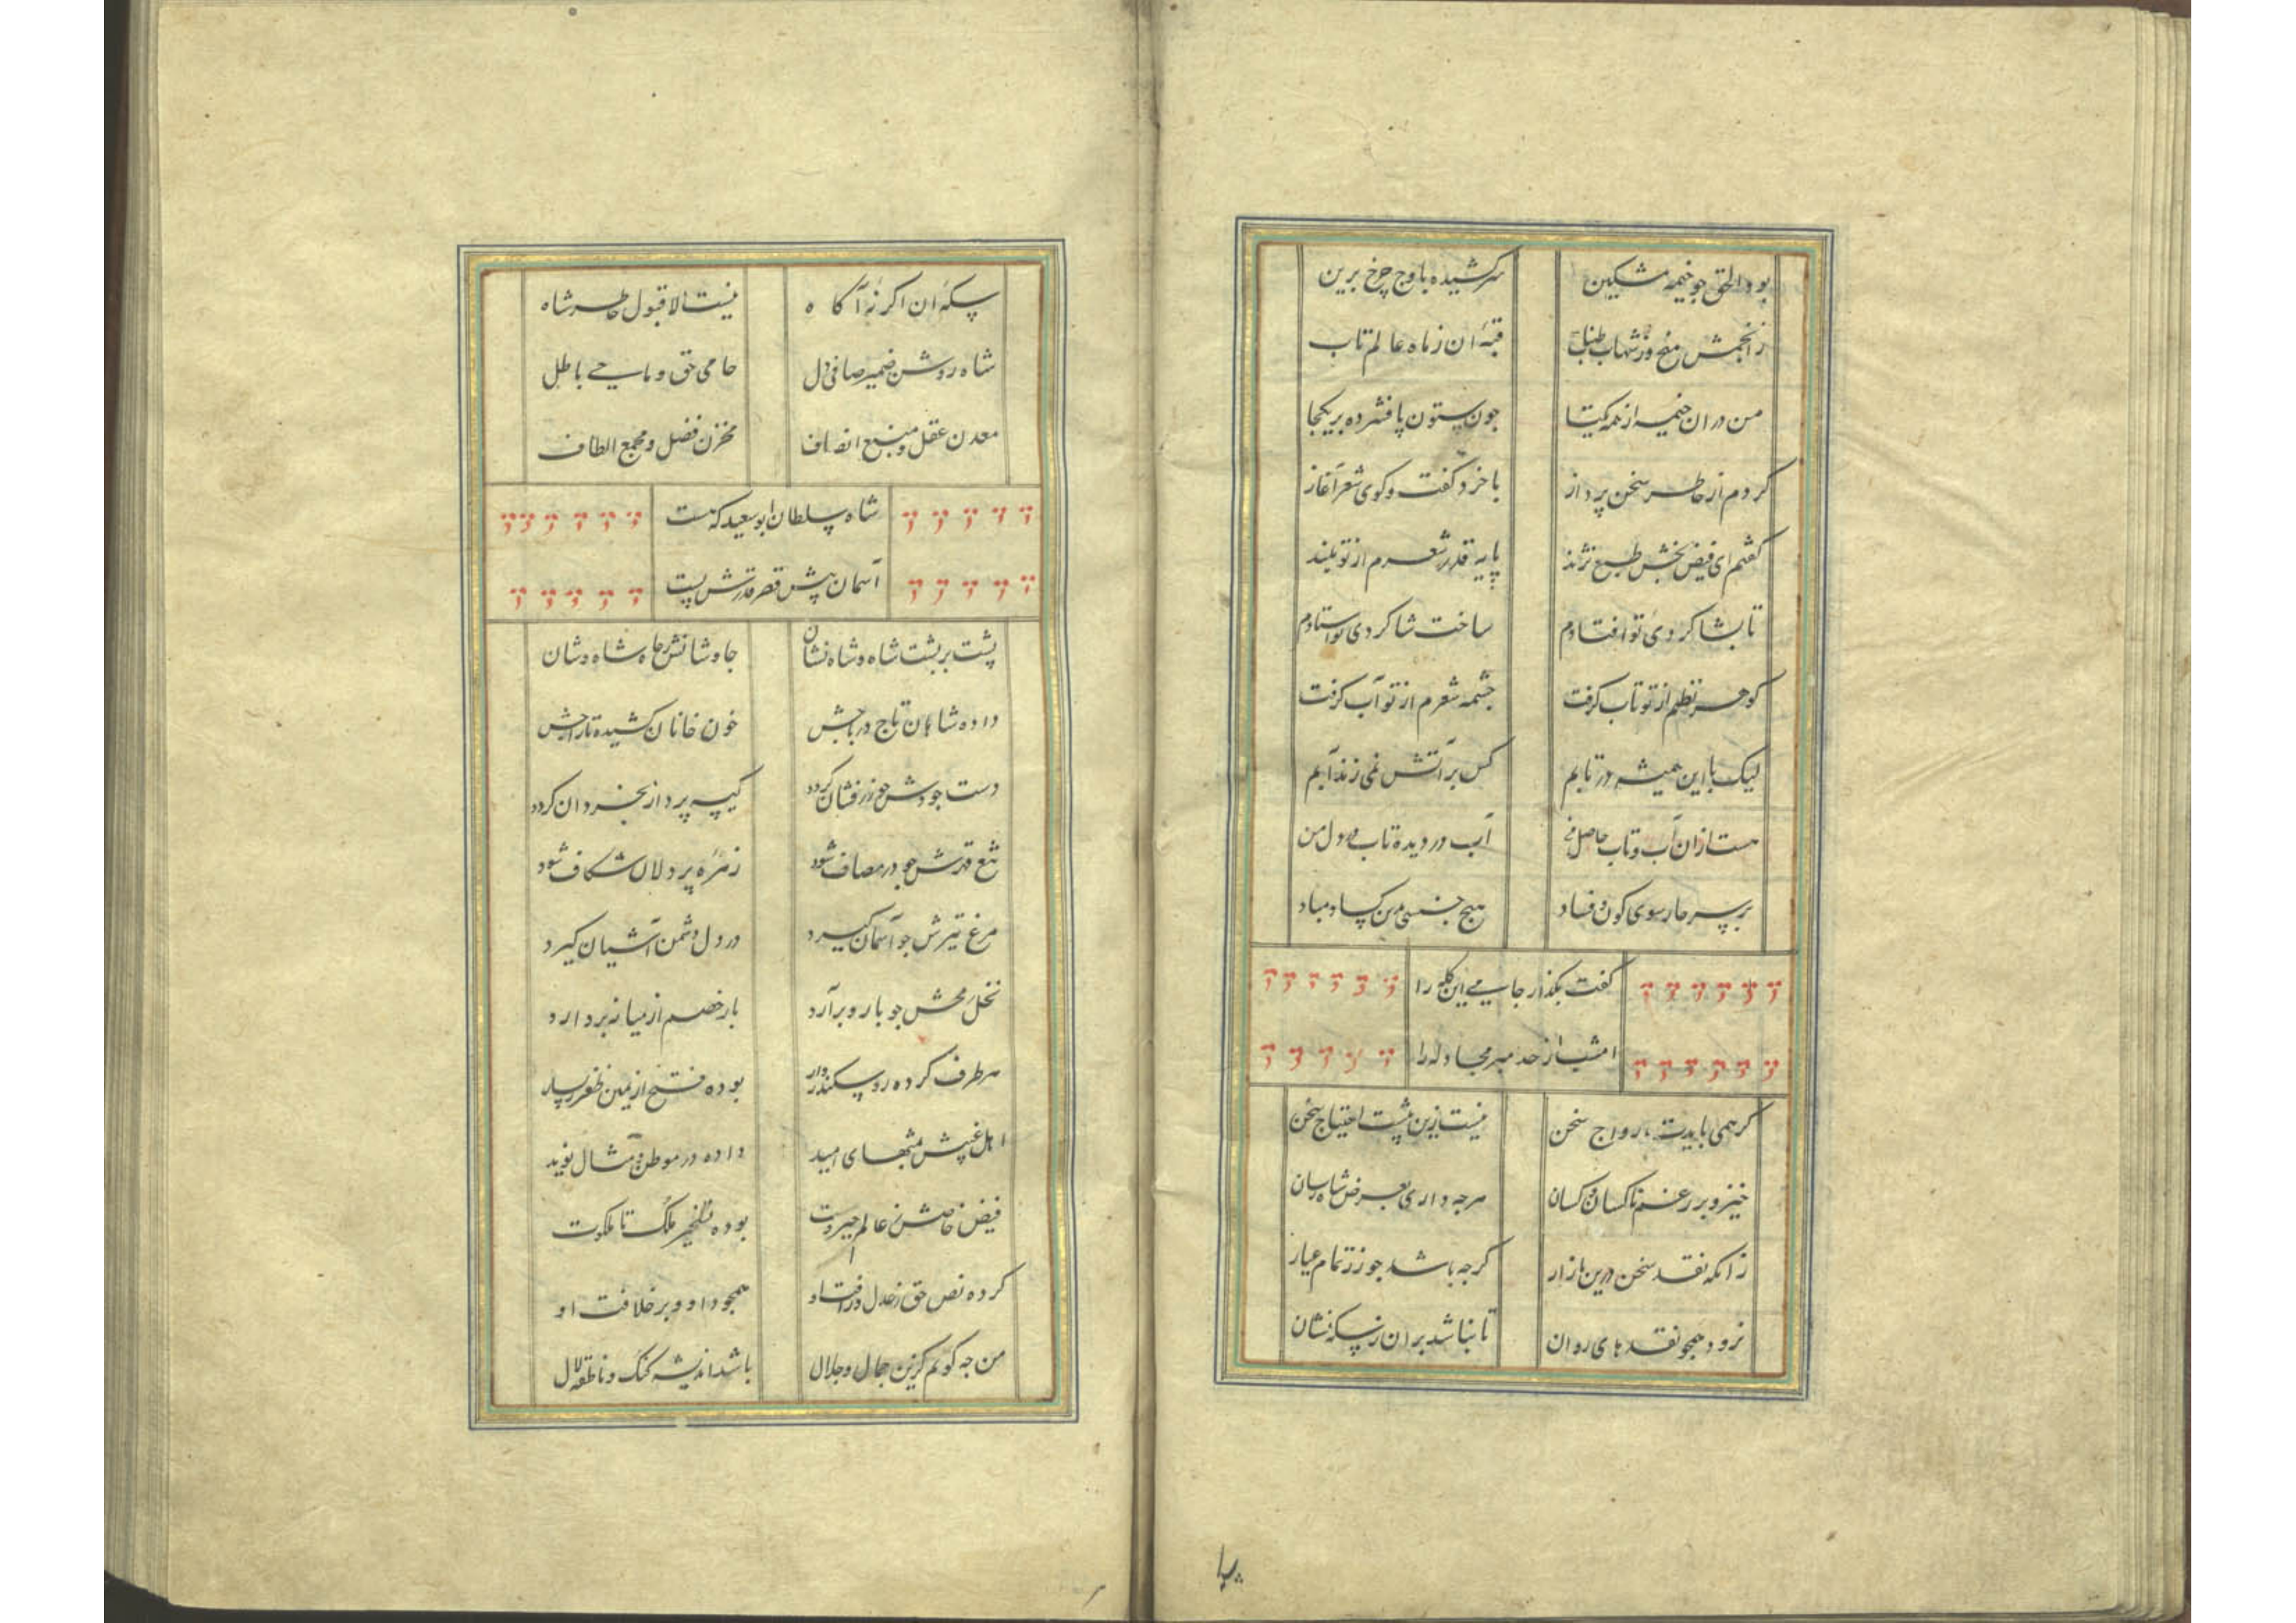 بود الحق جو خیمه مشکین سرکشیده باوج چرخ برین
ز انجمش میخ وز شهاب طناب قبهٔ ان ز ماه عالم تاب
من دران خیمه از همه یکتا جون ستون پا فشرده بر یکجا
کردم از خاطر سخن پرداز با خرد کفت و کوی شعر آغاز
کفتم ای فیض بخش طبع نژند پایه قدر شعرم از تو بلند
تا بشاکردی تو افتادم ساخت شاکردی تو استادم
کوهر نظم از تو تاب کرفت جشمه شعرم از تو آب کرفت
لیک با این همیشه در تابم کس بر آتش نمی زند آبم
هست ازان آب و تاب حاصل من آب در دیده تاب در دل من
بر سر جارسوی کون و فساد هیج جنسی جنین کساد مباد
کفت بکذار جامی این کله را
امشب از حد مبر مجادله را
کر همی بایدت رواج سخن نیست زین بیشت احتیاج سخن
خیز و بر رغم ناکسان و کسان هرجه داری بعرض شاه رسان
زانکه نقد سخن درین بازار کرجه باشد جو زر تمام عیار
نرود همجو نقدهای روان تا نباشد بران ز سکه نشان
سکهٔ ان اکر نهٔ آکاه نیست الا قبول خاطر شاه
شاه روشن ضمیر صافی دل حامی حق و ماحی باطل
معدن عقل و منبع انصاف مخزن فضل و مجمع الطاف
شاه سلطان ابو سعید که هست
آسمان پیش قصر قدرش پست
پشت بر پشت شاه و شاه نشان جاوشانش جاه شاه وشان
داده شاهان تاج در باجش خون خانان کشیده تاراجش
دست جودش جو زر فشان کردد کیسه پرداز بحر و ان کردد
تیغ قهرش جو در مصاف شود زهره پر دلان شکاف شود
مرغ تیرش جو آسمان کیرد در دل دشمن آشیان کیرد
نخل رمحش جو بار و بر آرد بار خصم از میانه بر دارد
هر طرف کرده رو سکندر وار بوده فتح از یمین ظفر ز یسار
اهل غیبش مثبهای امید داده در موطن مثال نوید
فیض خاصش ز عالم جبروت بوده تسخیر ملک تا ملکوت
کرده نص حق ز عدل و رافت او همجو داود بر خلافت او
من جه کویم کزین جمال و جلال باشد اندیشه کنک و ناطقه لال